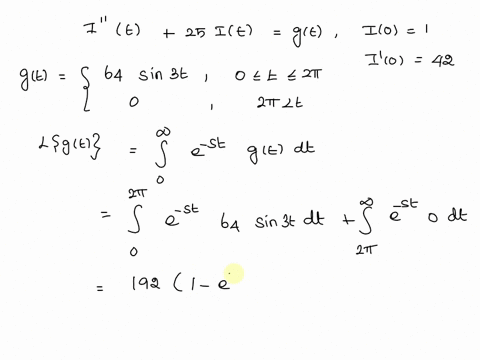 I''(t) + 25 I(t) = g(t), I(0) = 1
I'(0) = 42
g(t) = { 64 sin 3t, 0 ≤ t ≤ 2π
0, 2π < t
L{g(t)} = ∫₀^∞ e^{-st} g(t) dt
= ∫₀^{2π} e^{-st} 64 sin 3t dt + ∫_{2π}^∞ e^{-st} 0 dt
= 192 (1 - e